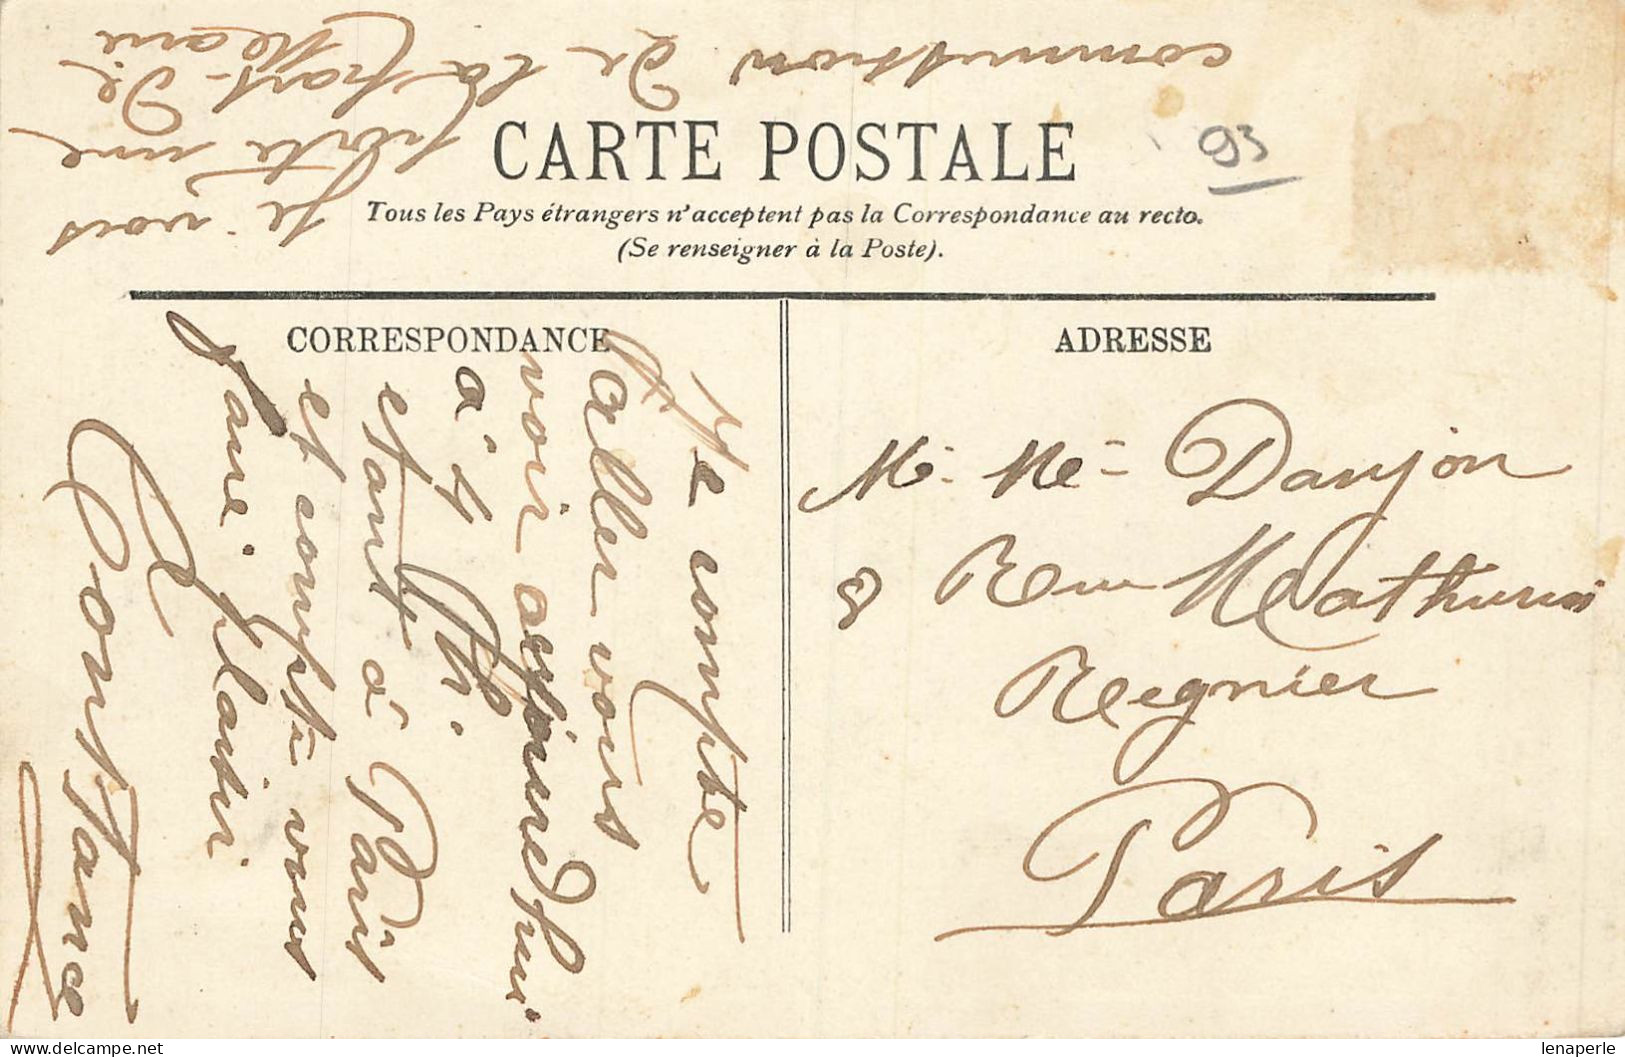 CARTE POSTALE
93
Tous les Pays étrangers n'acceptent pas la Correspondance au recto.
(Se renseigner à la Poste).
CORRESPONDANCE
ADRESSE
Je compte
aller vous
voir aujourd'hui
à 4 h.
étant à Paris
et compte vous
faire plaisir
Constance
je vois
porte une
commission de la part de
Danjon
8 Rue Mathurin
Regnier
Paris
lenaperle